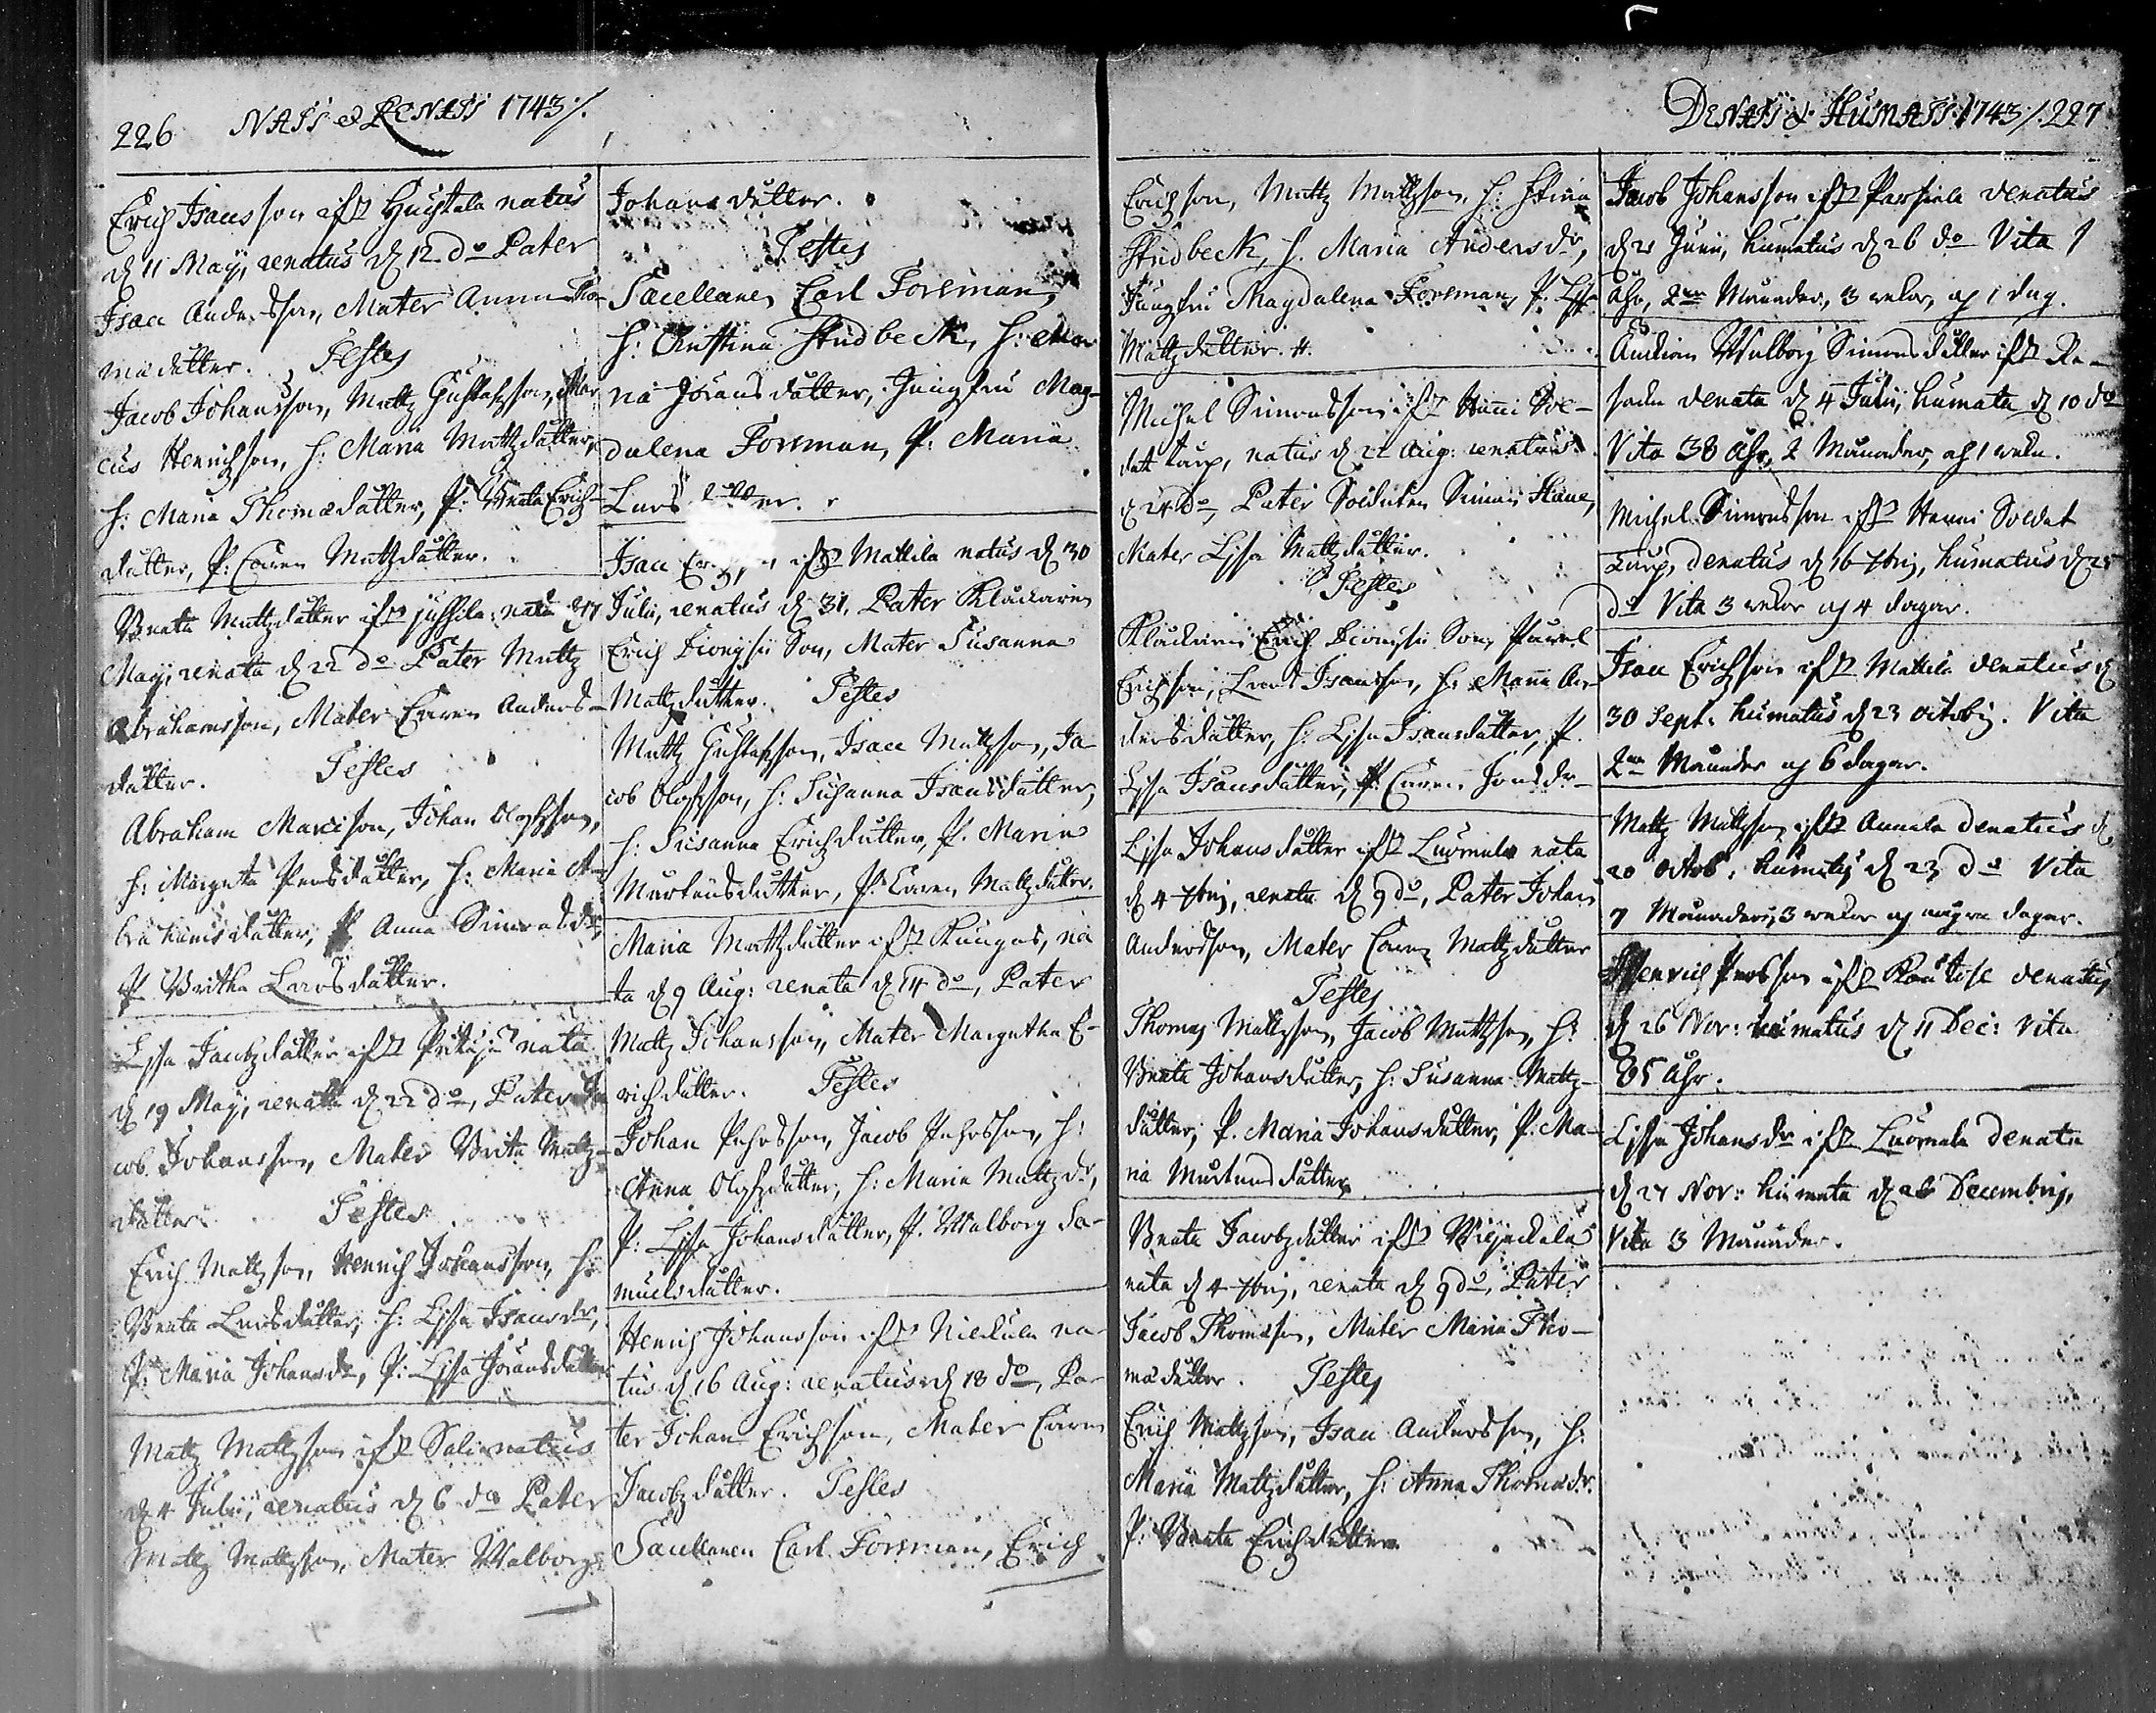 226 NATI & RENATI 1743 /.
Erich Isacsson ifrå Gustala natus
d 11 Maij, renatus d 12 do Pater
Isac Andersson, Mater Anna Tho-
mædåtter. Testes
Jacob Johansson, Mattz Gustafsson, Mar
cus Henrichson, h: Maria Mattzdåtter,
h: Maria Thomædåtter, P: Beata Erich
dåtter, P: Caren Mattzdåtter.
Beata Mattzdåtter ifrå Jussila nata d 17
Maij, renata d 22 do Pater Mattz
Abrahamsson, Mater Caren Anders-
dåtter. Testes
Abraham Marcison, Johan Olofsson,
h: Margeta Persdåtter, h: Maria A-
brahamsdåtter, P Anna Simonsdr,
P Britha Larsdåtter.
Lisa Jacobzdåtter ifrå nata
d 19 Maij, renata d 22 do, Pater Ja
cob Johansson, Mater Brita Mattz-
dåtter. Testes
Erich Mattzson, Henrich Johansson, h:
Beata Larsdåtter, h: Lisa Isacsdr,
P: Maria Johansdr, P: Lisa Göransdåtter
Mattz Mattzson ifrå Salinatus
d 4 Julii, renatus d 6 do Pater
Mattz Mattzson, Mater Walborg
Johansdåtter.
Testes
Sacellanen Carl Forsman,
h: Christina Studbeck, h: Ma
ria Göransdåtter, Jungfru Mag-
dalena Forsman, P: Maria
Larsdåtter.
Isac ifrå Mattila natus d 30
Julii, renatus d 31. Pater Klåckaren
Erich Dionysii Son, Mater Susanna
Mattzdåtter. Testes
Mattz Gustafsson, Isac Mattzson, Ja-
cob Olofsson, h: Susanna Isacsdåtter,
h: Susanna Erichdåtter, P. Maria
Mårtensdåtter, P: Caren Mattzdåtter.
Maria Mattzdåtter ifrå Kungas, na
ta d 9 Aug: renata d 14 do, Pater
Mattz Johansson, Mater Margetha E-
richdåtter. Testes
Johan Pehrsson, Jacob Pehrsson, h:
Anna Olofzdåtter, h: Maria Mattzdr,
P: Lisa Johansdåtter, P. Walborg Sa-
muelsdåtter.
Henrich Johansson ifrå Nickula na-
tus d 16 Aug: renatus d 18 do, Pa-
ter Johan Erichson, Mater Caren
Jacobzdåtter. Testes
Sacellanen Carl Forsman, Erich
DENATI & HUMATI 1743 /. 227
Erichson, Mattz Mattzson, h: Stina
Studbeck, h. Maria Andersdr,
Jungfru Magdalena Forsman, P: Lisa
Mattzdåtter.
Michel Simonsson ifrå Hanni Sol-
dat Torp, natus d 22 Aug: renatus
d 24 do, Pater Soldaten Simon Hane,
Mater Lisa Mattzdåtter.
Testes
Klåckaren Erich Dionysii Son, Pavel
Erichson, Lars Isacsson, h: Maria An-
dersdåtter, h: Lisa Isacsdåtter, P.
Lisa Isacsdåtter, P: Caren Jonsdr
Lisa Johansdåtter ifrå Luomala nata
d 4 7brij, renata d 9 do, Pater Johan
Andersson, Mater Caren Mattzdåtter
Testes
Thomas Mattzson, Jacob Mattzson, h:
Beata Johansdåtter, h: Susanna Mattz-
dåtter, P. Maria Johansdåtter, P. Ma-
ria Mårtensdåtter.
Beata Jacobzdåtter ifrå
nata d 4 7brij, renata d 9 do, Pater
Jacob Thomæson, Mater Maria Tho-
mædåtter. Testes
Erich Mattzson, Isac Andersson, h:
Maria Mattzdåtter, h: Anna Thomædr.
P: Beata Erichdåtter
Jacob Johansson ifrå Passiala denatus
d 21 Junii, humatus d 26 do Vita 1
åhr, 2ne Månader, 3 wekor, och 1 dag.
Enckian Walborg Simonsdåtter ifrå Ra-
denata d 4 Julii, humata d 10 do
Vita 38 åhr, 2 Månader, och 1 weka.
Michel Simonsson ifrå Hanni Soldat
Torp, denatus d 16 7brij, humatus d 25
do Vita 3 wekor och 4 dagar.
Isac Erichson ifrå Mattila denatus d
30 Sept: humatus d 23 octobrij. Vita
2ne Månader och 6 dagar.
Mattz Mattzson ifrå Annala denatus d
20 octob: humatus d 23 do Vita
7 Månader, 3 wekor och några dagar.
Henrich Persson ifrå denatus
d 26 Nov: humatus d 11 Dec: Vita
85 åhr.
Lisa Johansdr ifrå Luomala denata
d 27 Nov: humata d 26 Decembrij,
Vita 3 Månader.